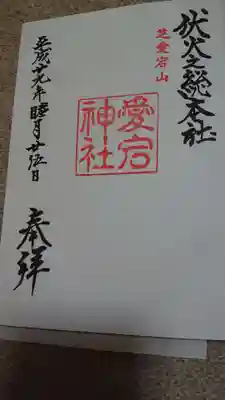 伏火之総本社
芝愛宕山
愛宕
神社
奉拝
平成廿九年睦月廿伍日